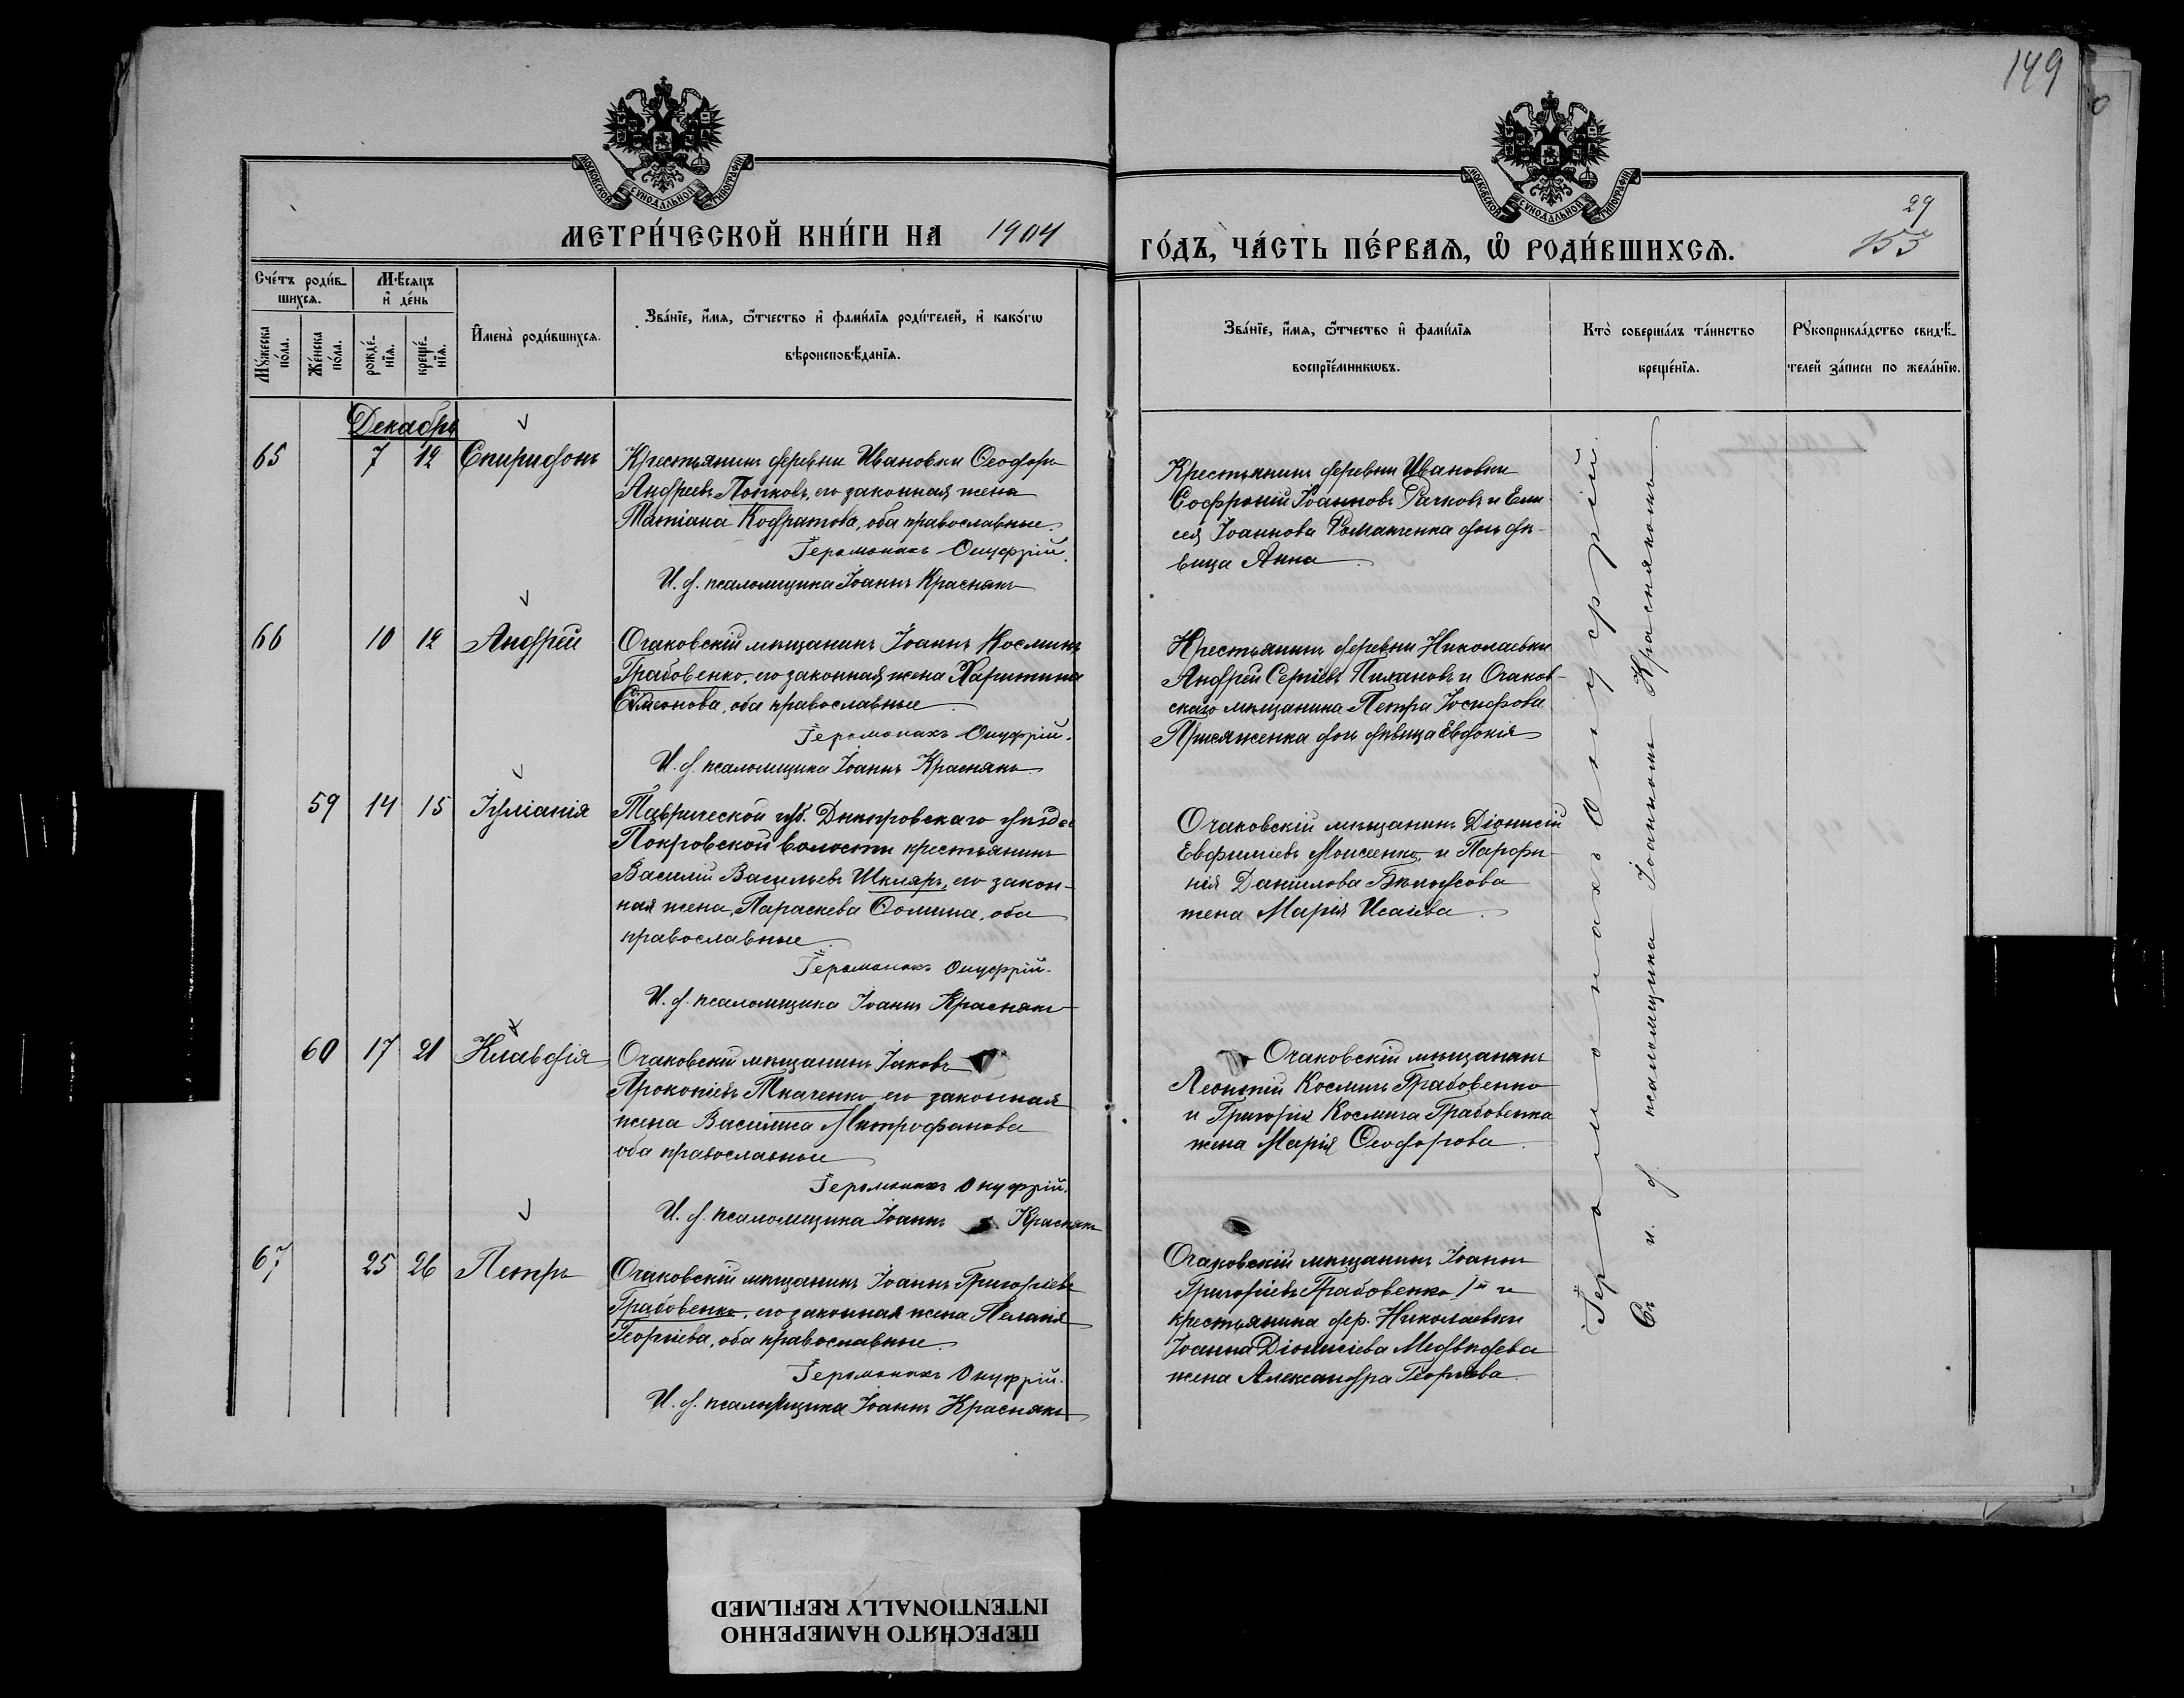 149
МОСКОВСКОЙ СУНОДАЛЬНОЙ ТИПОГРАФІИ
МОСКОВСКОЙ СУНОДАЛЬНОЙ ТИПОГРАФІИ
МЕТРИ́ЧЕСКОЙ КНИ́ГИ НА 1904
ГО́ДЪ, ЧА́СТЬ ПЕ́РВАЯ, Ѡ҆ РОДИ́ВШИХСѦ.
29
Сче́тъ роди́вшихсѧ.
Мꙋ́жеска по́ла.
Же́нска по́ла.
Мѣ́сѧцъ и҆ де́нь
рожде́нїѧ.
креще́нїѧ.
И҆мена̀ роди́вшихсѧ.
Зва́нїе, и҆́мѧ, ѻ҆́тчество и҆ фами́лїѧ роди́телей, и҆ како́гѡ
вѣроисповѣ́данїѧ.
Зва́нїе, и҆́мѧ, ѻ҆́тчество и҆ фами́лїѧ
воспрїе́мникѡвъ.
Кто̀ соверша́лъ та́инство
креще́нїѧ.
Рꙋкоприкла́дство свидѣ́-
телей за́писи по жела́нїю.
Декабрь
65 7 12 Спиридонъ
Крестьянинъ деревни Ивановки Ѳеодоръ
Андреевъ его законная жена
Татіана Кодратова, оба православные.
Іеромонахъ Онуфрій.
И. д. псаломщика Іоаннъ Краснякъ
Крестьянинъ деревни Ивановки
Софроній Іоанновъ Рачковъ и Ели-
сея Іоаннова Романченка дочь дѣ-
вица Анна
66 10 12 Андрей
Очаковскій мѣщанинъ Іоаннъ Косминъ
Грабовенко, его законная жена Харитина
Симеонова, оба православные
Іеромонахъ Онуфрій.
И. д. псаломщика Іоаннъ Краснякъ
Крестьянинъ деревни Николаевки
Андрей Сергіевъ и Очаков-
скаго мѣщанина Петра Іосифова
Присяженка дочь дѣвица Евдокія
59 14 15 Іуліанія
Таврической губ. Днѣпровскаго уѣзда
Покровской волости крестьянинъ
Василій Васильевъ Шкляръ, его закон-
ная жена, Параскева Ѳомина, оба
православные
Іеромонахъ Онуфрій.
И. д. псаломщика Іоаннъ Краснякъ
Очаковскій мѣщанинъ Діонисій
Евфиміевъ Моисеенко и Парфе-
нія Даніилова
жена Марія Исаіева
60 17 21 Клавдія
Очаковскій мѣщанинъ Іаковъ
Прокопіевъ Ткаченко его законная
жена Василиса Митрофанова
оба православные
Іеромонахъ Онуфрій.
И. д. псаломщика Іоаннъ Краснякъ
Очаковскій мѣщанинъ
Леонтій Косминъ Грабовенко
и Григорія Космина Грабовенка
жена Марія Ѳеодорова
67 25 26 Петръ
Очаковскій мѣщанинъ Іоаннъ Григоріевъ
Грабовенко, его законная жена Пелагія
Георгіева, оба православные.
Іеромонахъ Онуфрій.
И. д. псаломщика Іоаннъ Краснякъ
Очаковскій мѣщанинъ Іоаннъ
Григоріевъ Грабовенко 1й и
крестьянина дер. Николаевки
Іоанна Діонисіева Медвѣдева
жена Александра Георгіева
Іеромонахъ Онуфрій.
Съ и. д. псаломщика Іоанномъ Краснякомъ.
ПЕРЕСНЯТО НАМЕРЕННО
INTENTIONALLY REFILMED